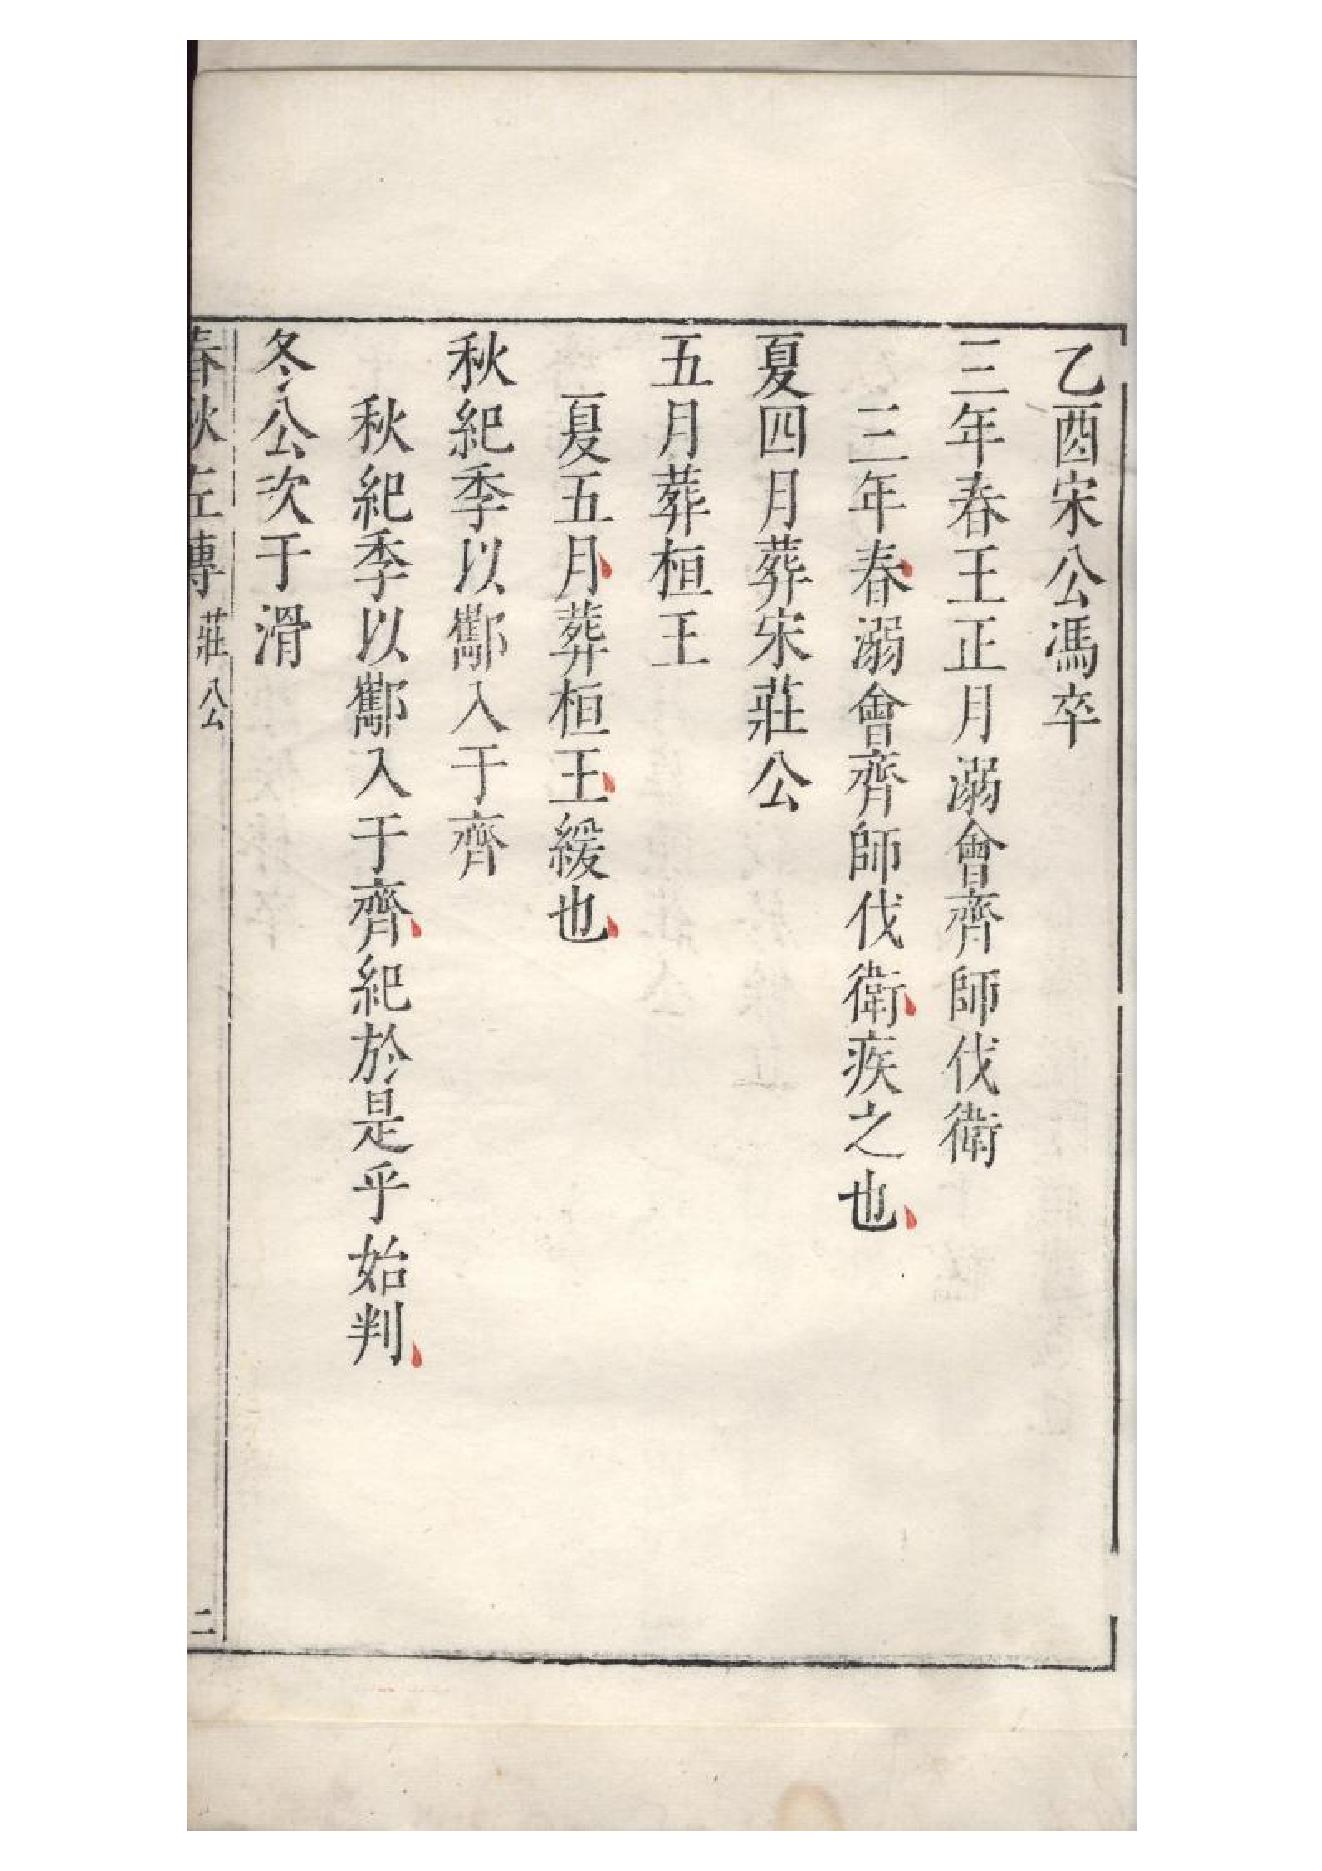 乙酉宋公馮卒
三年春王正月溺會齊師伐衛
三年春溺會齊師伐衛疾之也
夏四月葬宋莊公
五月葬桓王
夏五月葬桓王緩也
秋紀季以酅入于齊
秋紀季以酅入于齊紀於是乎始判
冬公次于滑
春秋左傳 莊公 二